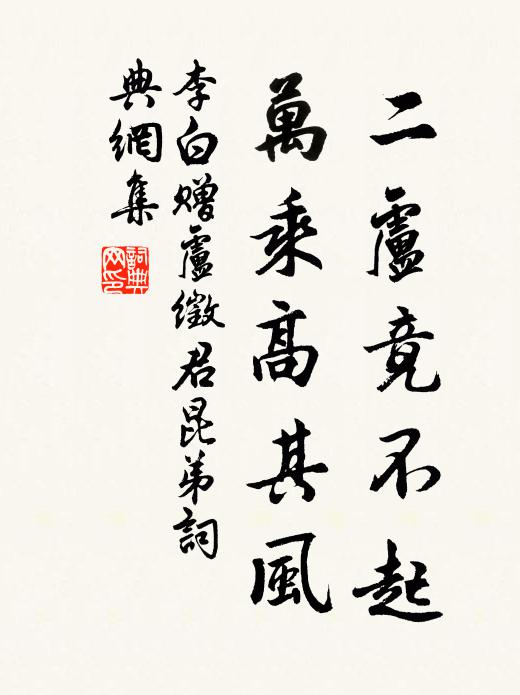 二盧竟不起
萬乘高其風
李白贈盧徵君昆弟詞
典網集
詞典网印